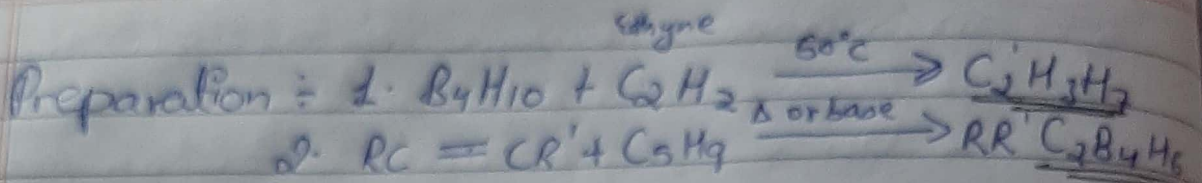 Ethyne
Preparation ÷ 1. B4H10 + C2H2 50°C → C2'H3H7
2. RC = CR' + C5H9 Δ or base → RR'C2B4H6